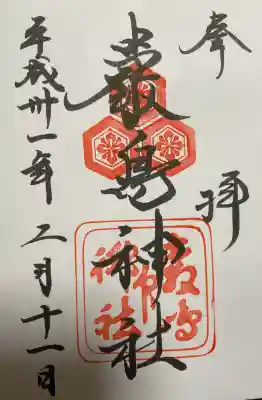 奉拝
嚴島神社
平成卅一年二月十一日
嚴島神社